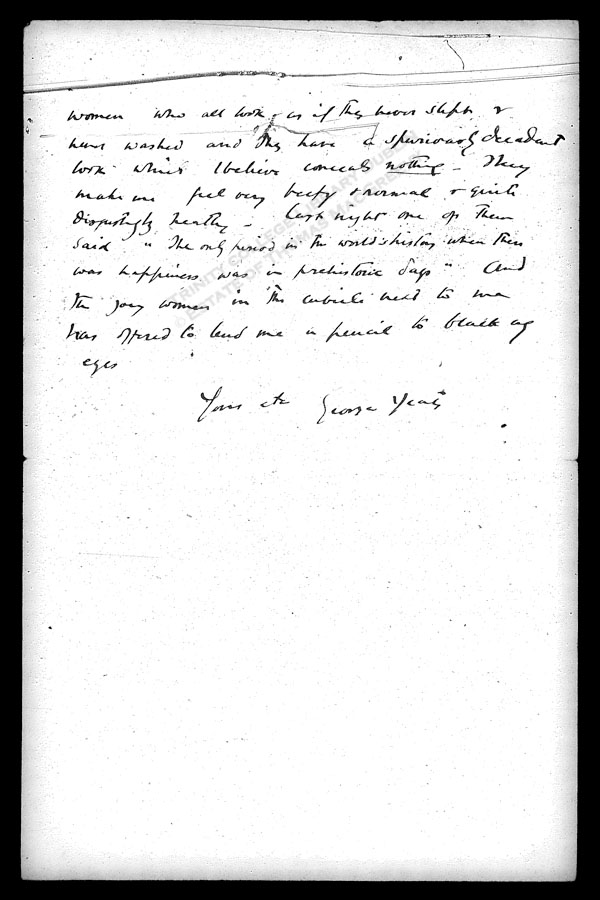 women who all look as if they never slept &
never washed and they have a spuriously decadent
look which I believe conceals nothing - They
make me feel very beefy & normal & quite
disgustingly healthy - Last night one of them
said "The only period in the world's history when there
was happiness was in prehistoric days" And
the young woman in the cubicle next to me
has offered to lend me a pencil to black my
eyes
Yours etc George Yeats
TRINITY COLLEGE LIBRARY DUBLIN
ESTATE OF THOMAS MACGREEVY